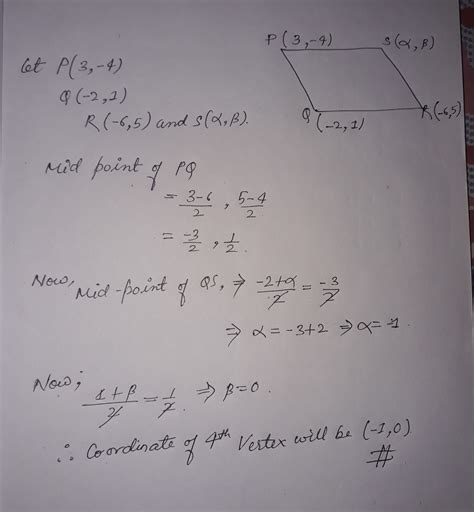 P(3,-4) S(α,β)
let P(3,-4)
Q(-2,1)
R(-6,5) and S(α,β).
Q (-2,1) R(-6,5)
Mid point of PQ
= 3-6/2 , 5-4/2
= -3/2 , 1/2.
Now, Mid-point of QS, ⇒ -2+α/2 = -3/2
⇒ α = -3+2 ⇒ α=-1.
Now; 1+β/2 = 1/2 ⇒ β=0.
∴ Coordinate of 4th Vertex will be (-1,0)
#